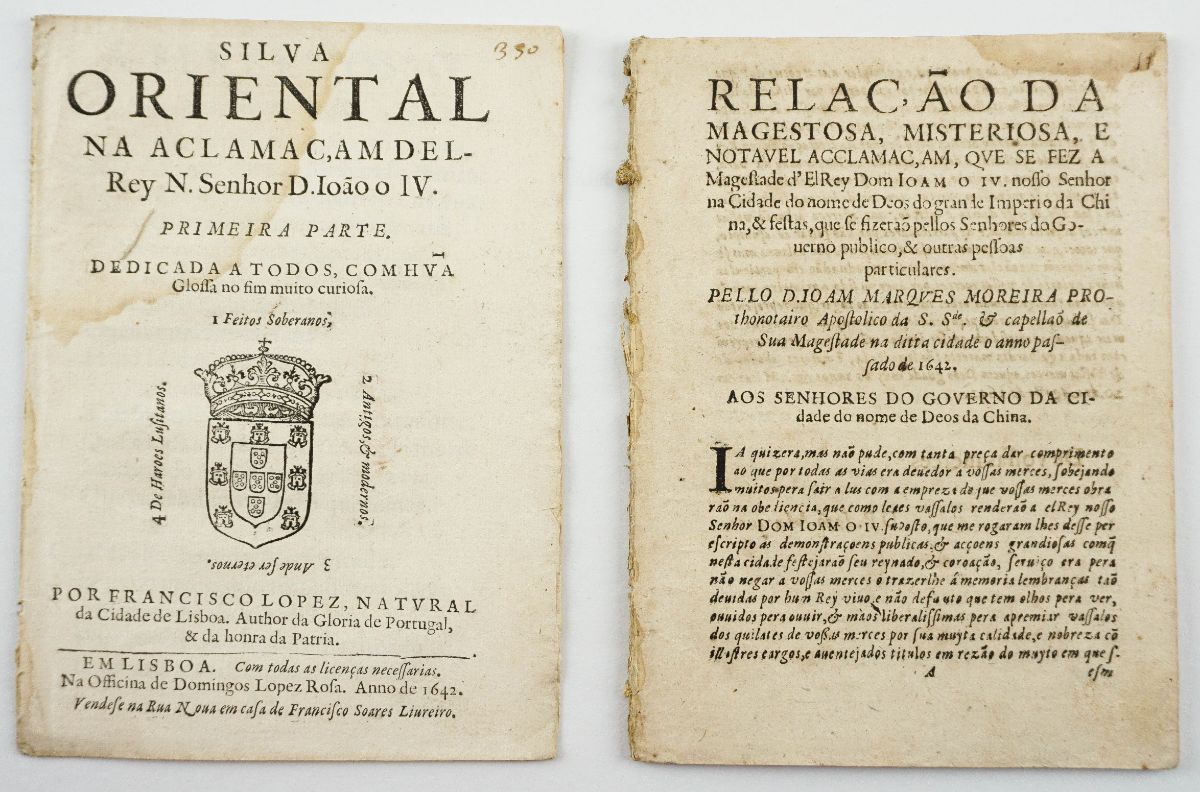 B 30
SILVA
ORIENTAL
NA ACLAMAC,AM DEL-
Rey N. Senhor D. Ioão o IV.
PRIMEIRA PARTE.
DEDICADA A TODOS, COM HV̄A
Glossa no fim muito curiosa.
1 Feitos Soberanos,
2 Antigos, & modernos.
3 Ande ser eternos.
4 De Haroes Lusitanos.
POR FRANCISCO LOPEZ, NATVRAL
da Cidade de Lisboa. Author da Gloria de Portugal,
& da honra da Patria.
EM LISBOA. Com todas as licenças necessarias.
Na Officina de Domingos Lopez Rosa. Anno de 1642.
Vendese na Rua Noua em casa de Francisco Soares Liureiro.
11
RELAC,ÃO DA
MAGESTOSA, MISTERIOSA, E
NOTAVEL ACCLAMAC,AM, QVE SE FEZ A
Magestade d' ElRey Dom IOAM O IV. nosso Senhor
na Cidade do nome de Deos do grande Imperio da Chi
na, & festas, que se fizeraõ pellos Senhores do Go-
uerno publico, & outras pessoas
particulares.
PELLO D. IOAM MARQVES MOREIRA PRO-
thonotairo Apostolico da S. Sde. & capellaõ de
Sua Magestade na ditta cidade o anno pas-
sado de 1642.
AOS SENHORES DO GOVERNO DA CI-
dade do nome de Deos da China.
IA quizera, mas não pude, com tanta preça dar comprimento
ao que por todas as vias era deuedor a vossas merces, sobejando
muitos pera sair a lus com a empreza de que vossas merces obra
raõ na obe liencia, que como leaes vassalos renderaõ a elRey nosso
Senhor DOM IOAM O IV. suposto, que me rogaram lhes desse per
escripto as demonstraçoens publicas, & acçoens grandiosas comq̃
nesta cidade festejaraõ seu reynado, & coroação, seruiço era pera
não negar a vossas merces o trazerlhe á memoria lembranças taõ
deuidas por hun Rey viuo, e não defunto que tem olhos pera ver,
ouuidos pera ouuir, & mãos liberalissimas pera apremiar vassalos
dos quilates de vossas merces por sua muyta calidade, e nobreza cõ
illustres cargos, e auentejados titulos em rezão do muyto em que s.
A esm